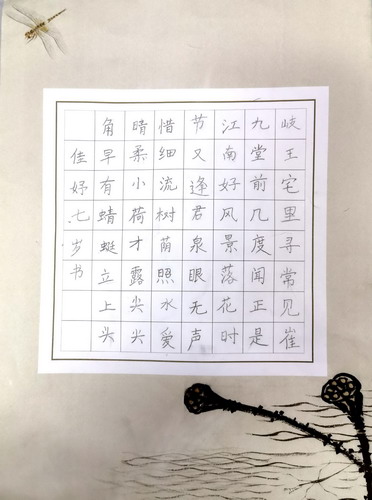 岐王宅里寻常见崔
九堂前几度闻正是
江南好风景落花时
节又逢君泉眼无声
惜细流树荫照水爱
晴柔小荷才露尖尖
角早有蜻蜓立上头
佳妤七岁书